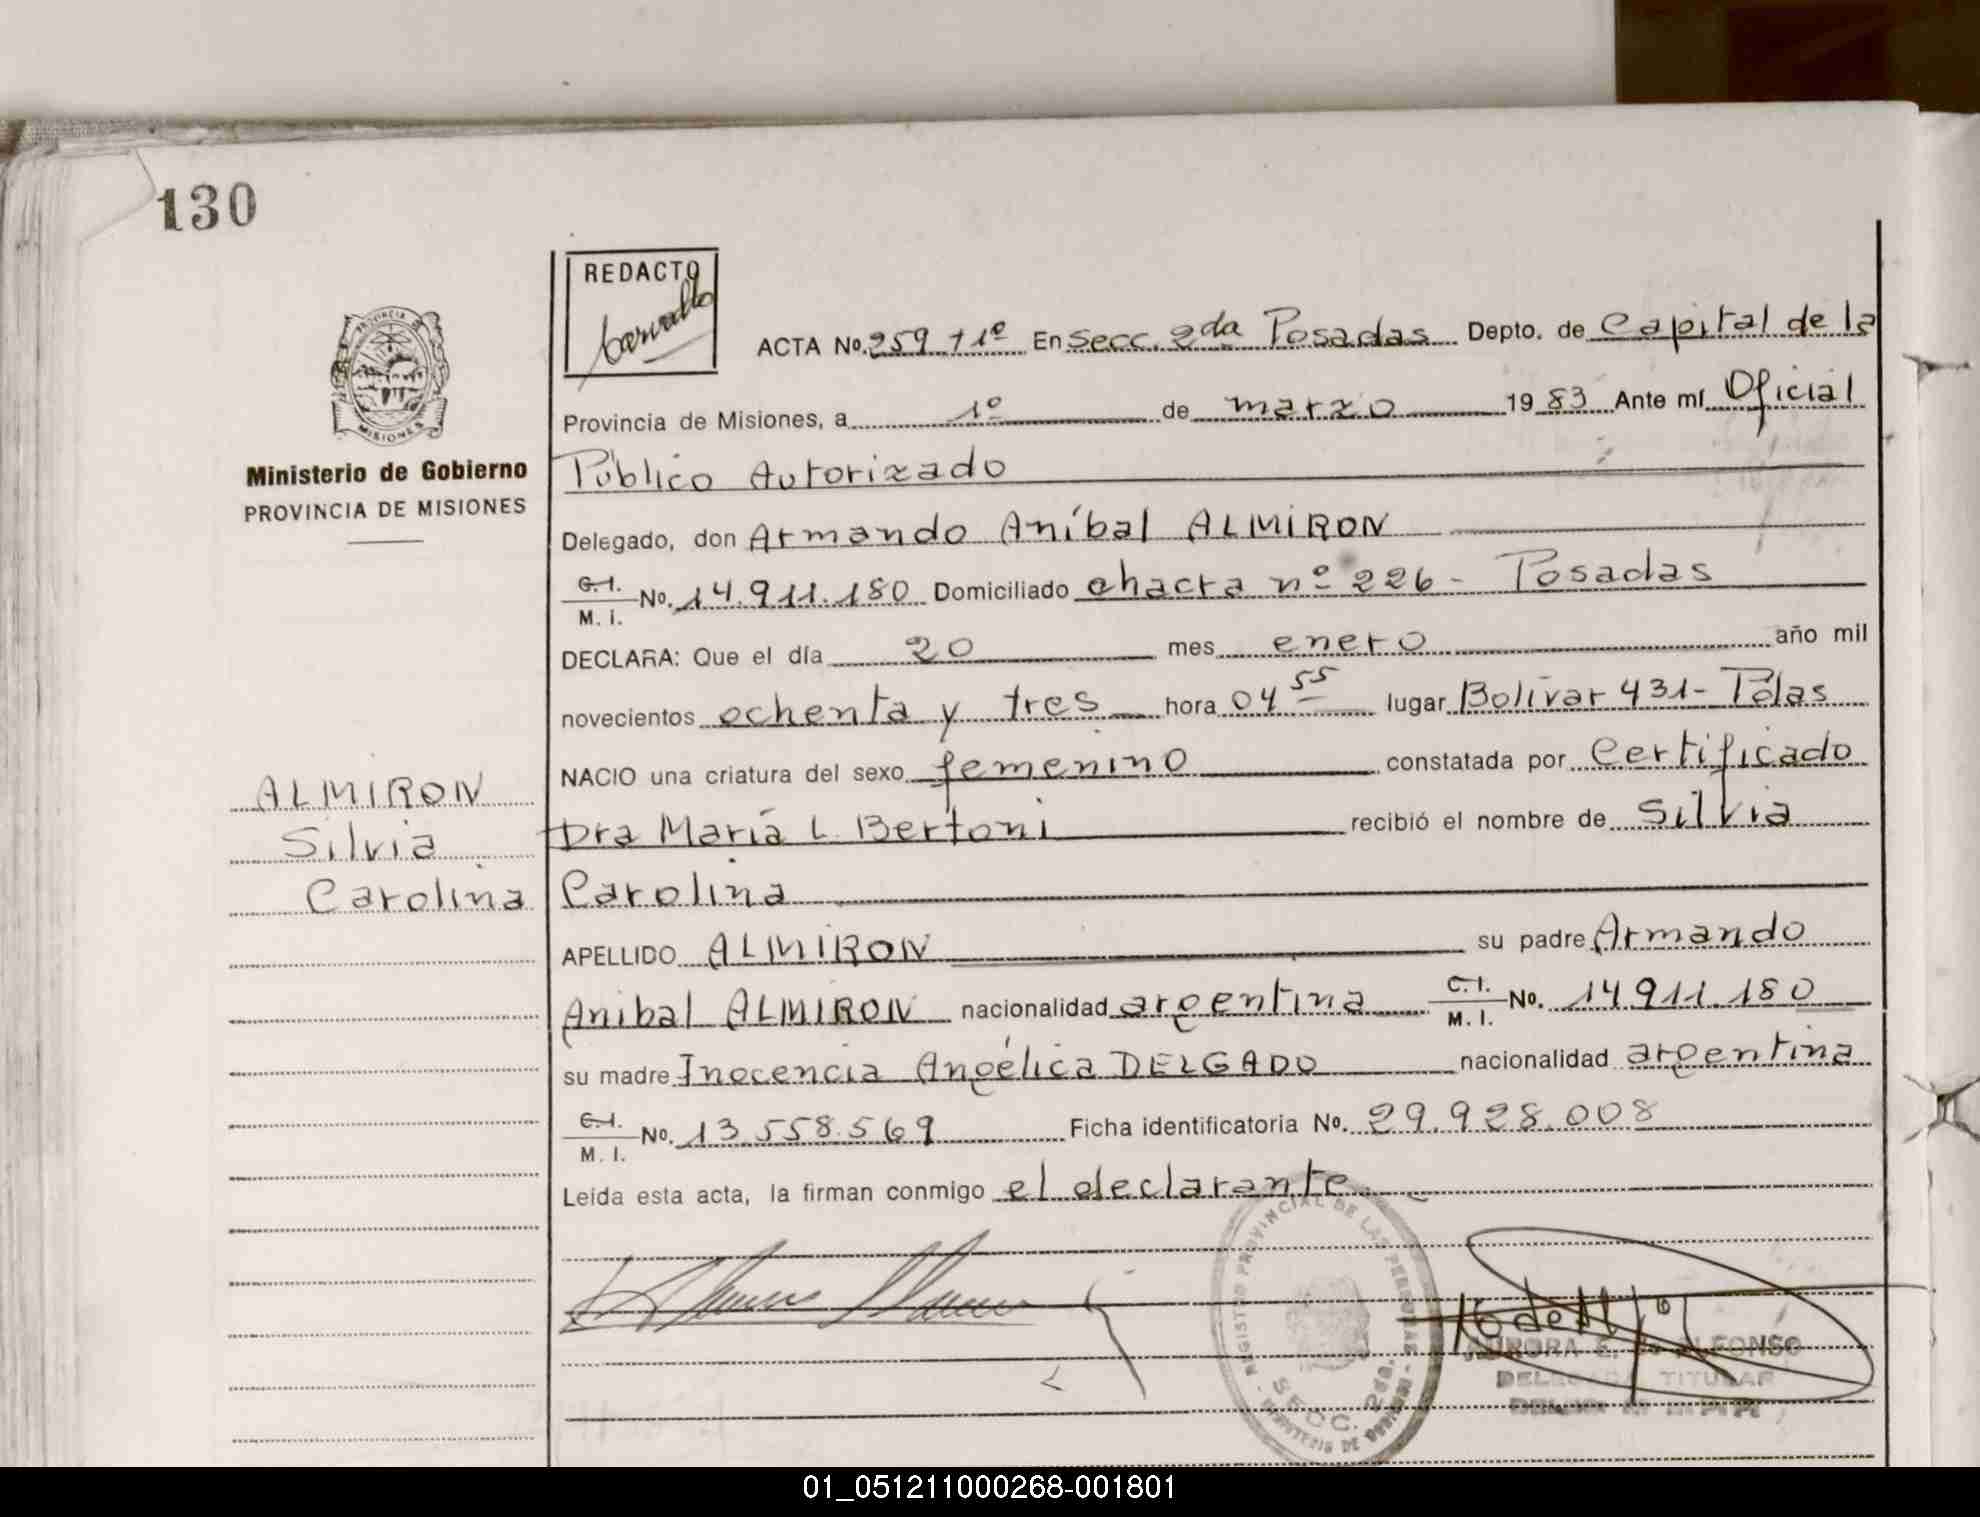 130
REDACTO
ACTA No. 259 T 1º En Secc. 2da Posadas Depto. de Capital de la
Provincia de Misiones, a 1º de marzo 1983 Ante mí Oficial
Ministerio de Gobierno
PROVINCIA DE MISIONES
Público Autorizado
Delegado, don Armando Aníbal ALMIRON
C.I. M. I. No. 14.911.180 Domiciliado chacra nº 226 - Posadas
DECLARA: Que el día 20 mes enero año mil
novecientos ochenta y tres hora 04 55 lugar Bolívar 431 - Pdas
NACIO una criatura del sexo femenino constatada por Certificado
Dra María L. Bertoni recibió el nombre de Silvia
Carolina
ALMIRON
Silvia
Carolina
APELLIDO ALMIRON su padre Armando
Anibal ALMIRON nacionalidad argentina C.I. M. I. No. 14911.180
su madre Inocencia Angélica DELGADO nacionalidad argentina
C.I. M. I. No. 13.558.569 Ficha identificatoria No. 29.928.008
Leída esta acta, la firman conmigo el declarante
REGISTRO PROVINCIAL DE LAS PERSONAS
SECC. 2da.
AURORA E. DE ALFONSO
DELEGADA TITULAR
01_051211000268-001801